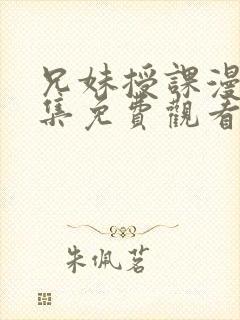 兄妹授課漫
集免費觀看
朱佩茗